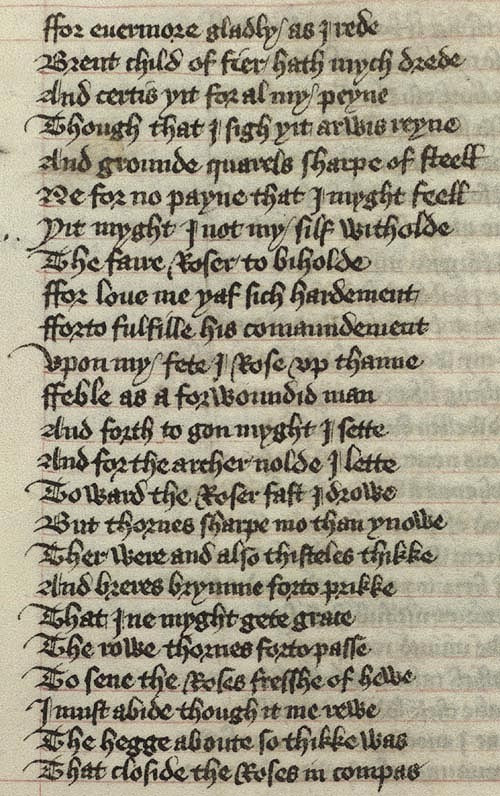 ffor euermore gladly / as I rede
Brent child of fier / hath mych drede
And certis yit for al my / peyne
Though that I sigh yit arwis reyne
And grounde quarels sharpe of steell
Ne for no payne that I myght feell
Yit myght I not my / silf witholde
The faire Roser to biholde
ffor loue me yaf sich hardement
fforto fulfille his comaundement
Vpon my / fete I Rose vp thanne
ffeble as a forwoundid man
And forth to gon myght I sette
And for the archer nolde I lette
Toward the Roser fast I drowe
But thornes sharpe mo than ynowe
Ther were and also thisteles thikke
And breres brymme forto prikke
That I ne myght gete grace
The rowe thornes forto passe
To sene the Roses fresshe of hewe
I must abide though it me rewe
The hegge aboute so thikke was
That closide the Roses in compas